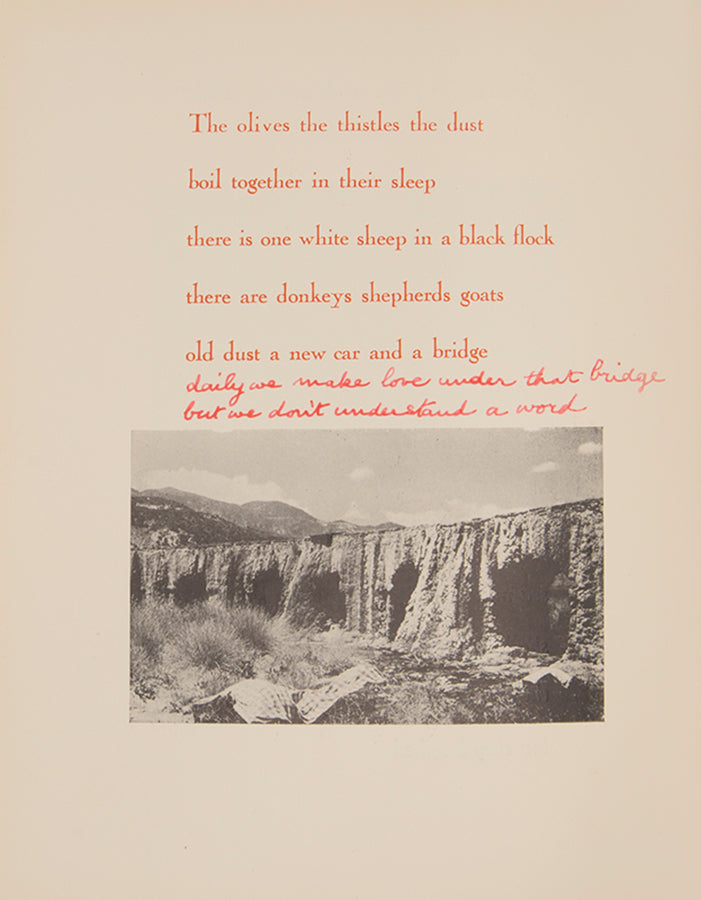 The olives the thistles the dust
boil together in their sleep
there is one white sheep in a black flock
there are donkeys shepherds goats
old dust a new car and a bridge
daily we make love under that bridge
but we don't understand a word